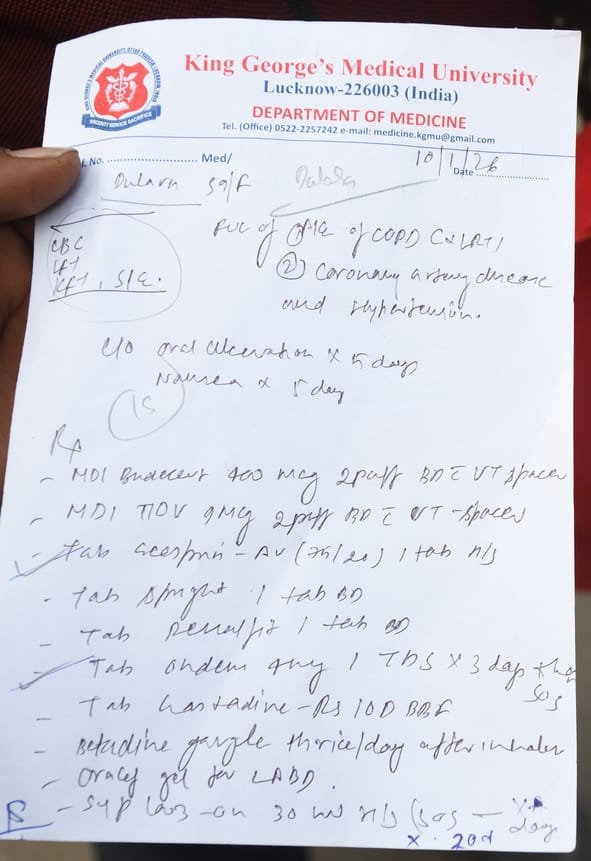 KING GEORGE'S MEDICAL UNIVERSITY UTTAR PRADESH, LUCKNOW, INDIA
SINCERITY SERVICE SACRIFICE
King George's Medical University
Lucknow-226003 (India)
DEPARTMENT OF MEDICINE
Tel. (Office) 0522-2257242 e-mail: medicine.kgmu@gmail.com
f. No. .............................. Med/
Date 10/1/26
Dulara 59/F Dulara
CBC
LFT
KFT, S/E.
FUC of of COPD
② Coronary artery disease
and Hypertension.
C/O oral ulceration x 5 days
Nausea x 5 day
15
Rx
- MDI Budecort 400 mcg 2puff BD c VT spacer
- MDI TIOV 9mcg 2puff BD c VT-spacer
- Tab Ecosprin-AV (75/20) 1 tab H/S
- Tab 1 tab BD
- Tab 1 tab BD
- Tab Ondem 4mg 1 TDS x 3 days then
SOS
- Tab -RS 1OD BBF
- Betadine gargle thrice/day after inhaler
- gel for LA BD.
- Syp on 30 ml H/S (SOS
x 20d